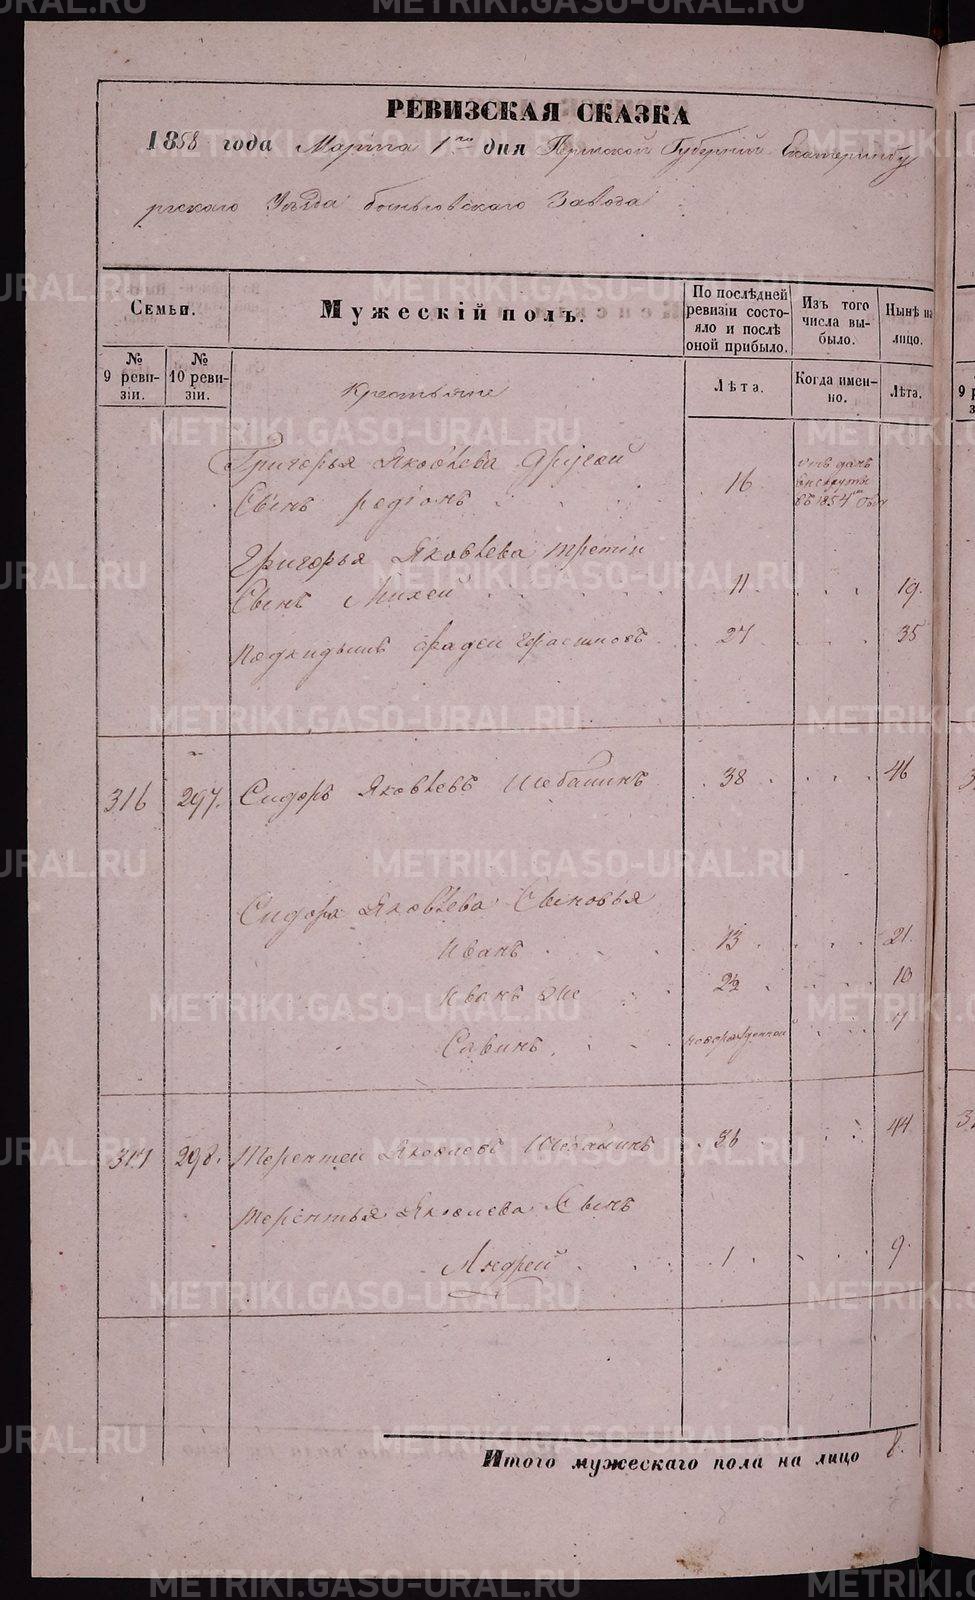 РЕВИЗСКАЯ СКАЗКА
1858 года Марта 1го дня Пермской Губернии Екатеринбу
ргскаго Уезда Завода
Семьи.
Мужескій полъ.
По послѣдней ревизіи состояло и послѣ оной прибыло.
Изъ того числа выбыло.
Нынѣ на лицо.
№ 9 ревизіи.
№ 10 ревизіи.
Крестьяне
Лѣта.
Когда именно.
Лѣта.
Григорья Яковлева другой
Сынъ родіонъ 16 въ рекруты въ 1854мъ году
Григорья Яковлева третій
Сынъ Михей 11 19
Подкидышъ фадеи 27 35
316 297. Сидоръ Яковлевъ Шебалинъ 38 46
Сидора Яковлева Сыновья
Иванъ 13 21
Иванъ же 2½ 10
Савинъ новорожденной 7
317 298. Терентеи Яковлевъ Шебалинъ 36 44
Терентья Яковлева Сынъ
Андрей 1 9
Итого мужескаго пола на лицо 8.
METRIKI.GASO-URAL.RU